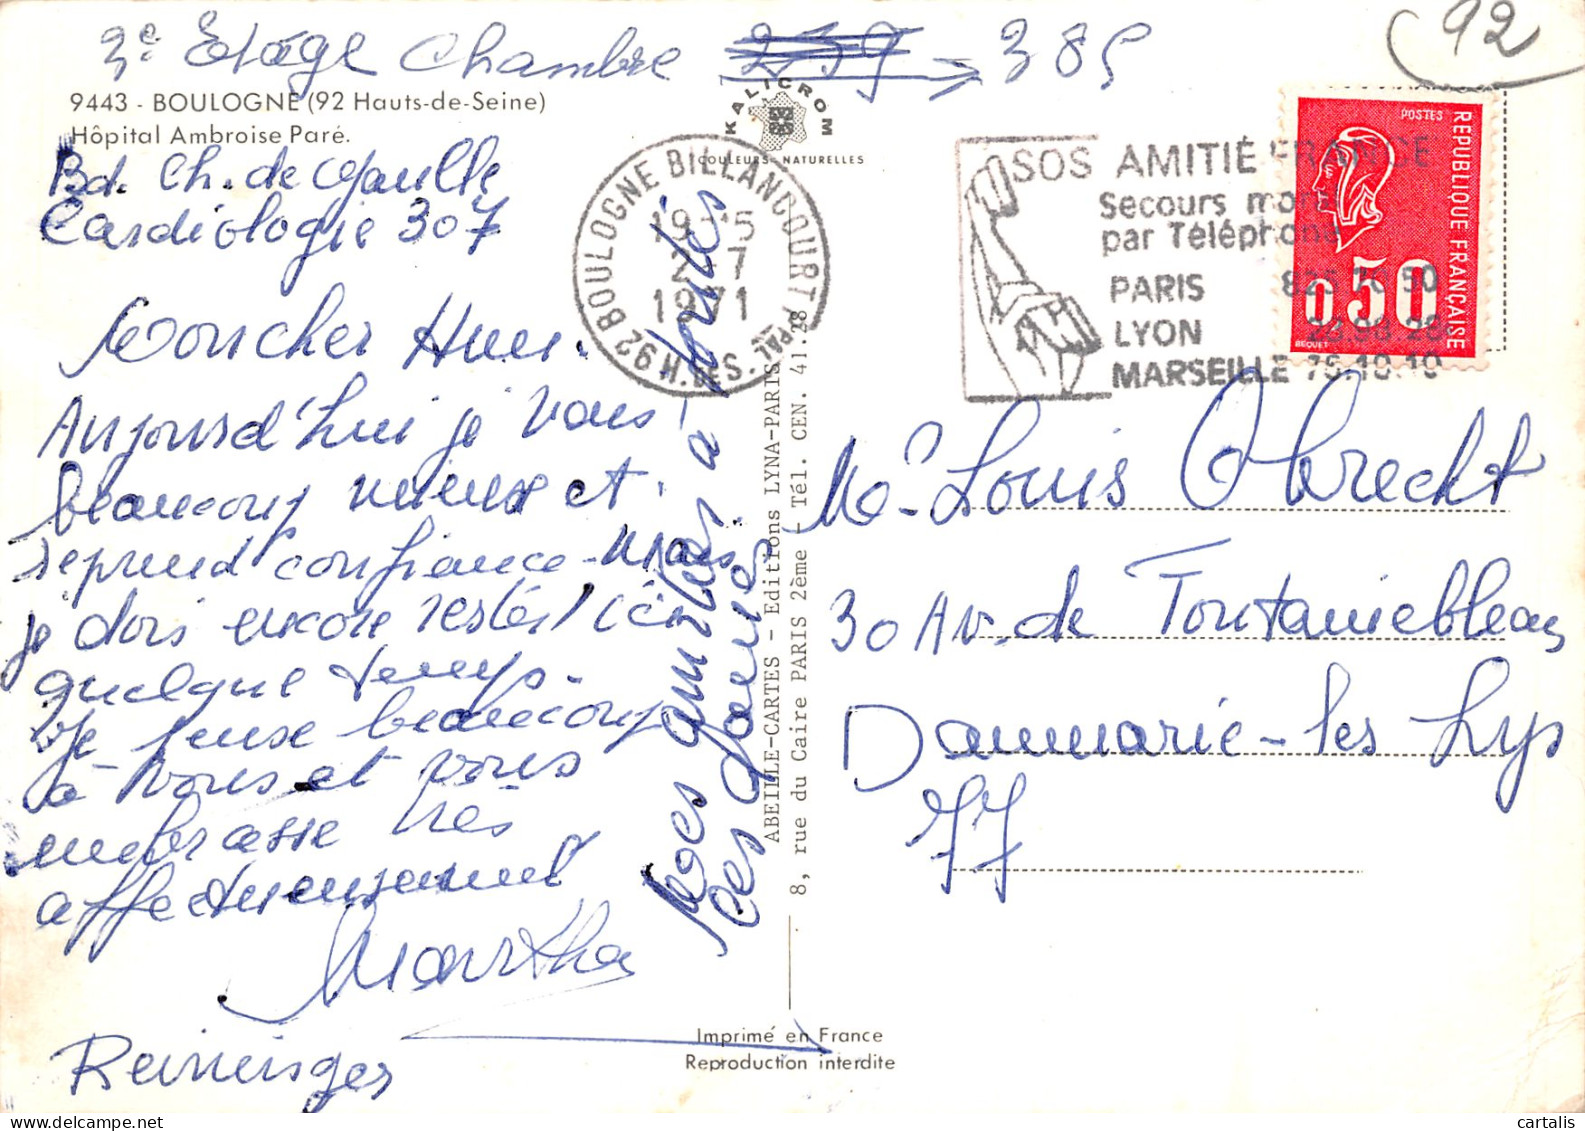 92
3e Etage Chambre 385
9443 - BOULOGNE (92 Hauts-de-Seine)
Hôpital Ambroise Paré.
Bd. Ch. de Gaulle
Cardiologie 307
Aujourd'hui je vais
beaucoup mieux et
reprend confiance - mais
je dois encore rester ici
quelque temps.
Je pense beaucoup
à vous et vous
embrasse très
affectueusement
Martha
Reininger
Mes amitiés à toutes
ces
KALICROM
COULEURS NATURELLES
ABEILLE-CARTES - Editions LYNA-PARIS
8, rue du Caire PARIS 2ème - Tél. CEN. 41.28
Imprimé en France
Reproduction interdite
92 BOULOGNE BILLANCOURT PPAL
H. DES S.
19-15
2-7
1971
SOS AMITIÉ FRANCE
Secours moral
par Téléphone
PARIS 825 70 50
LYON
MARSEILLE 75.10.10
POSTES
REPUBLIQUE FRANÇAISE
0,50
BEQUET
Me Louis Obrecht
30 Av. de Fontainebleau
Dammarie-les Lys
77
cartalis